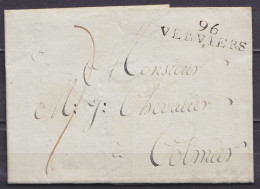 96
VERVIERS
7
A Monsieur
M: J: Chevalier
à Colmar